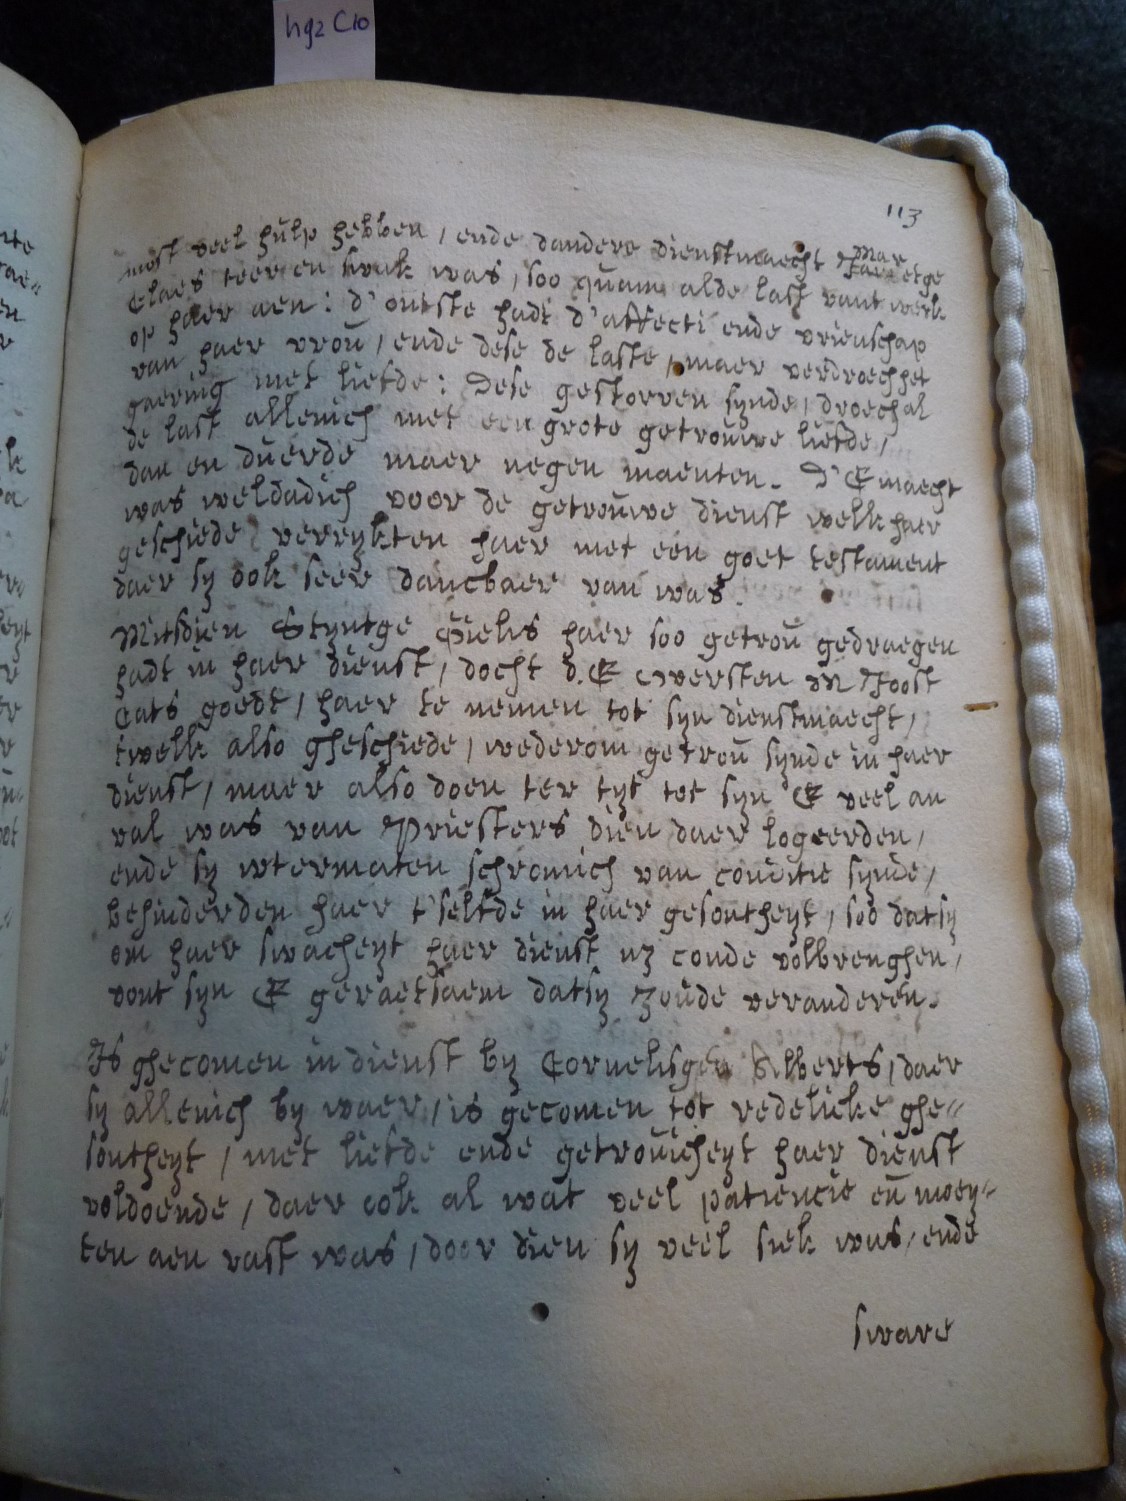 hg2 C10
113
most veel hulp hebben / ende dandere dienstmaecht Mar
Claes teer en swak was / soo quam alde last vant werk
op haer aen: d'outste hadt d'affecti ende vrienschap
van haer vrou / ende dese de laste / maer verdroech het
gaering met liefde: Dese gestorven synde / droech al
de last allenich met een grote getrouwe liefde /
dan en duerde maer negen maenten. D'E maecht
was weldadich voor de getrouwe dienst welk haer
geschiede / verrykten haer met een goet testament
daer sy ook seer dancbaer van was.
Mitsdien Styntge Gielis haer soo getrou gedraegen
hadt in haer dienst / docht d. E Oversten M Joost
Cats goedt / haer te nemen tot syn dienstmaecht /
twelk also gheschiede / wederom getrou synde in haer
dienst / maer also doen ter tyt tot syn E veel an
val was van Priesters dien daer logeerden /
ende sy wtermaten schromich van conditie synde /
behinderden haer t'selfde in haer gesontheyt / soo datsy
om haer swacheyt haer dienst ny conde volbrenghen /
vont syn E geraetsaem datsy zoude veranderen.
Is ghecomen in dienst by Cornelisgen Alberts / daer
sy allenich by waer / is gecomen tot redelicke ghe=
sontheyt / met liefde ende getrouicheyt haer dienst
voldoende / daer ook al wat veel patiencie en moey=
ten aen vast was / door dien sy veel siek was / ende
sware